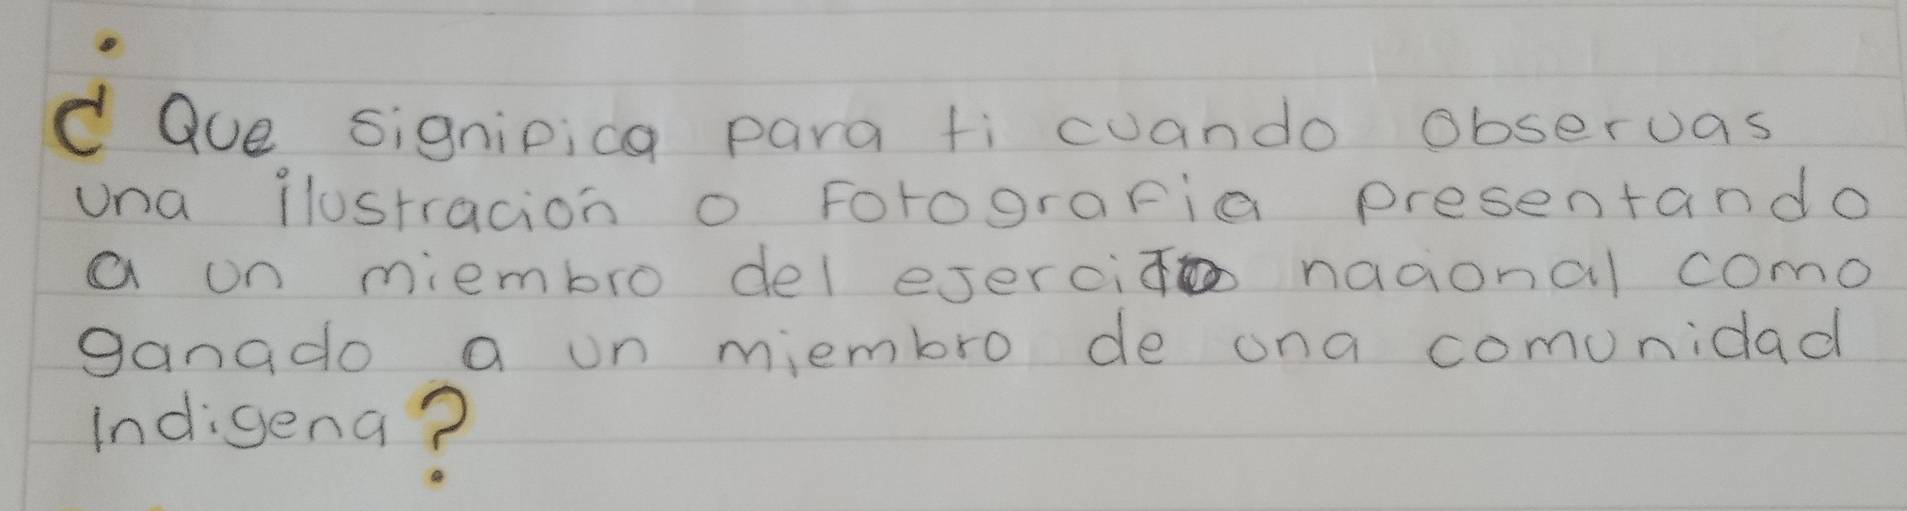 ¿ Que significa para ti cuando observas
una ilustración o Fotografia presentando
a un miembro del ejercito nacional como
ganado a un miembro de una comunidad
indigena?